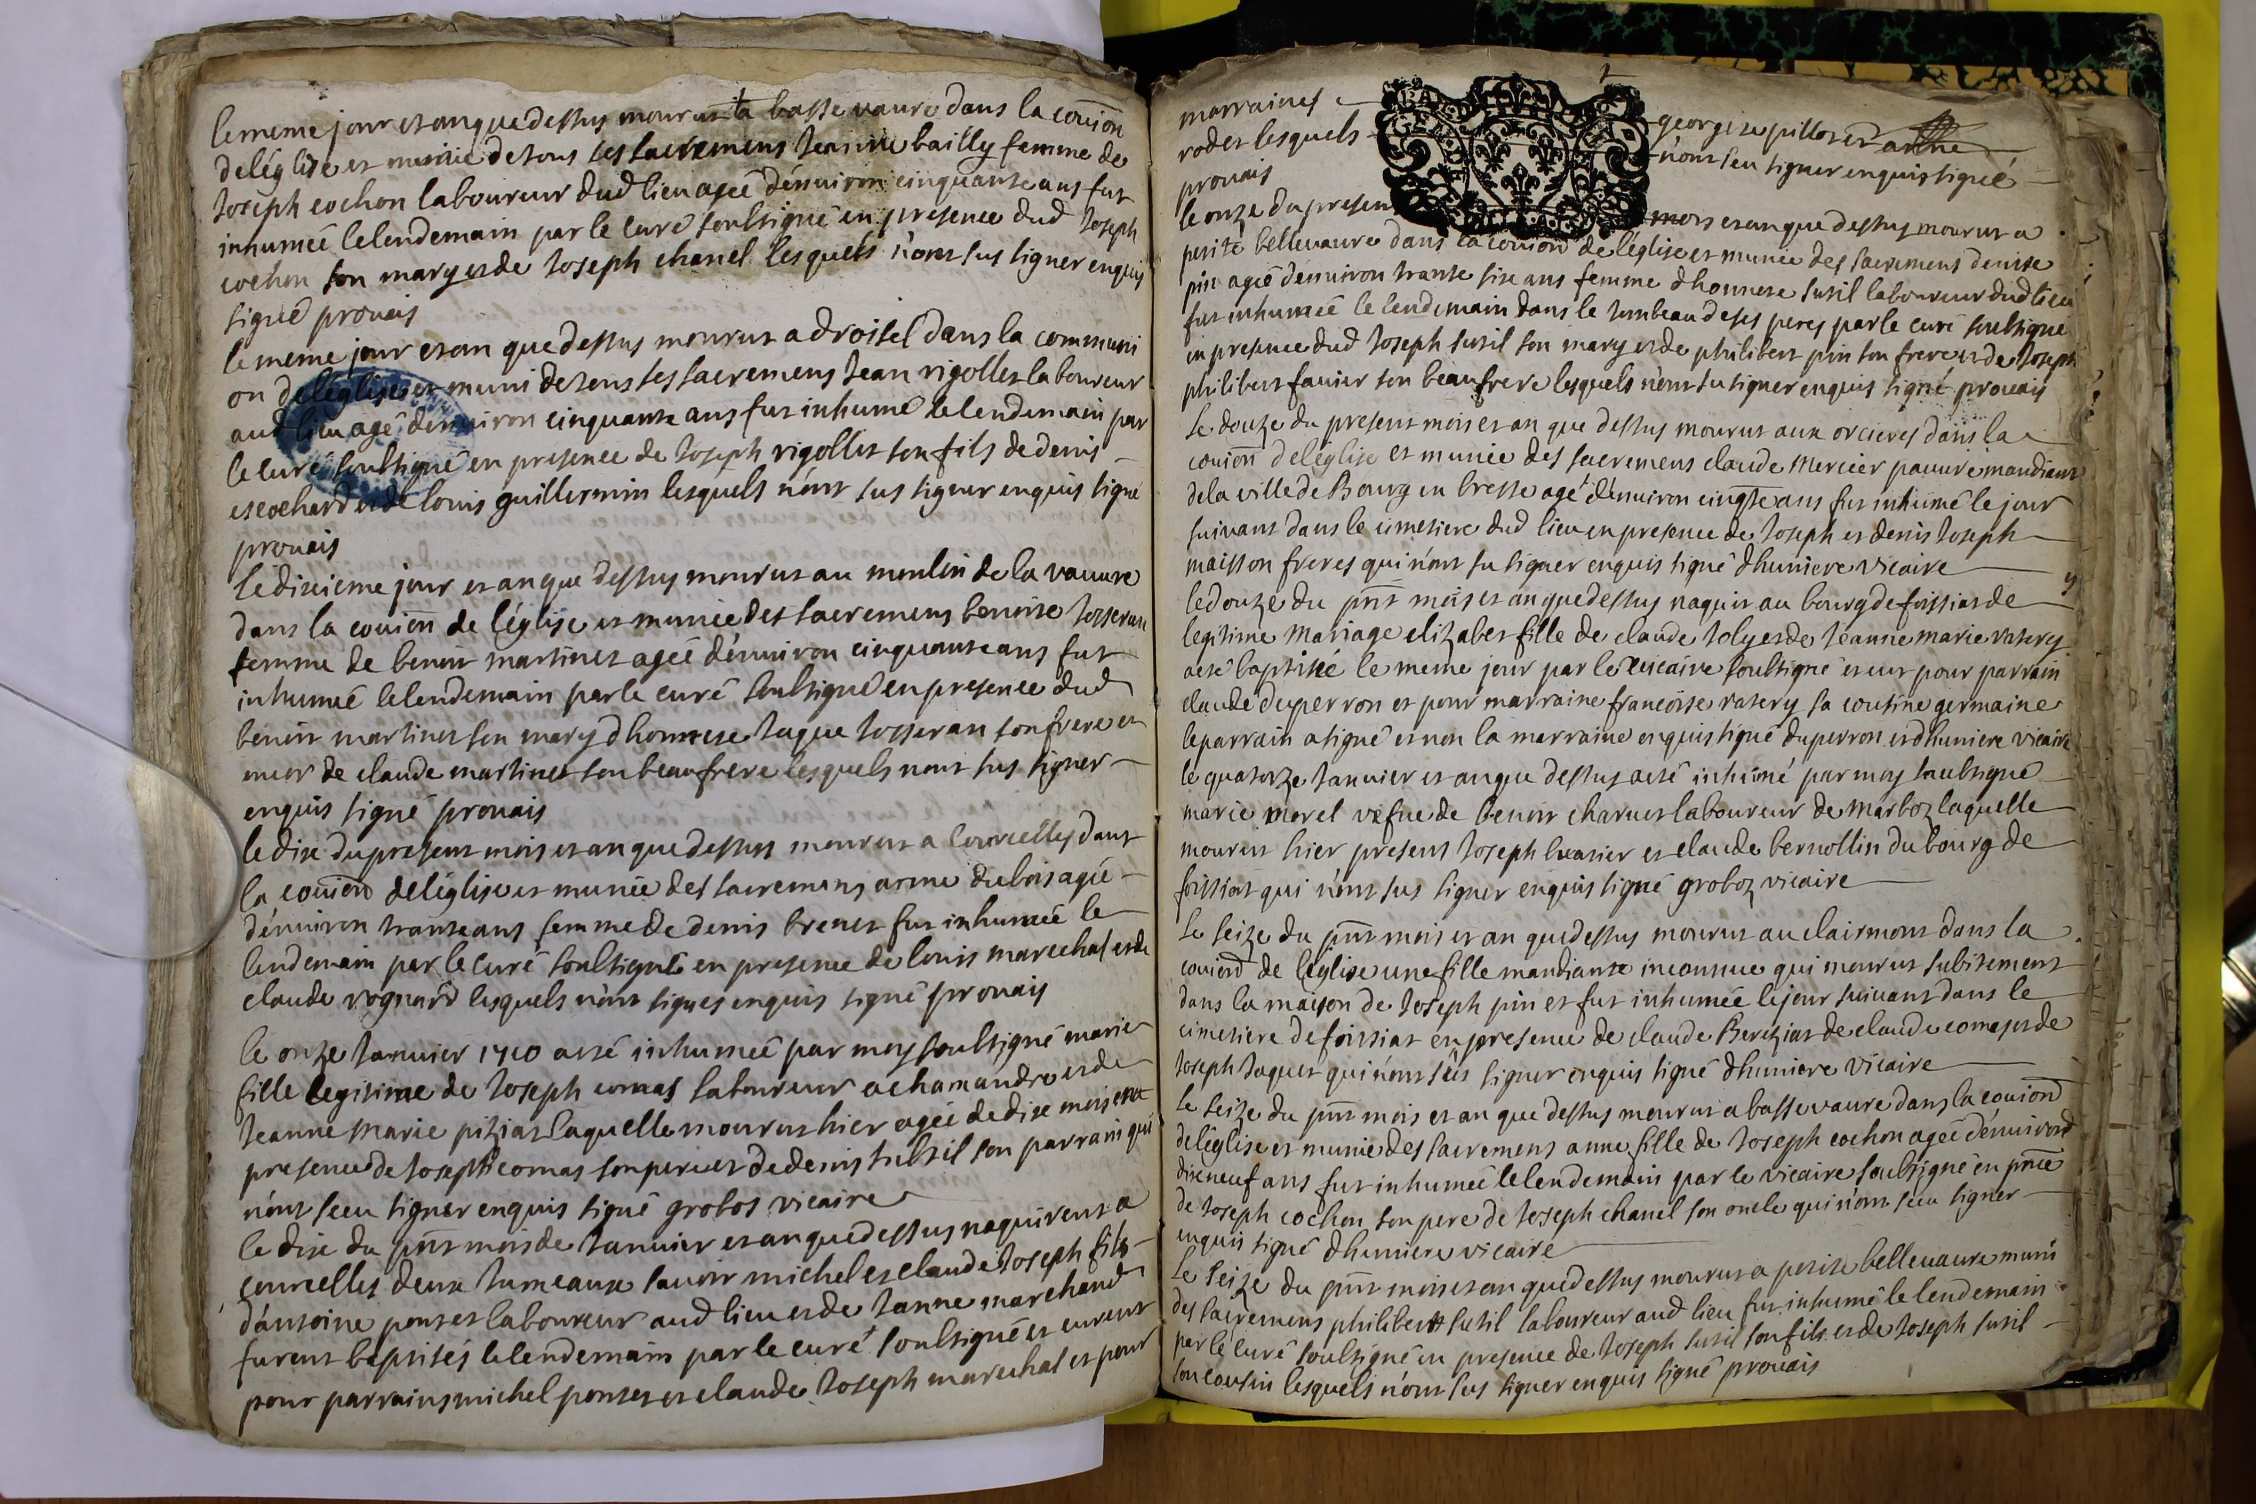 le meme jour et an que dessus mourut a basse vaure dans la couion
de léglise et munie de tous ses sacremens bailly femme de
Joseph cochon laboureur dud lieu agée dénuiron cinquante ans fut
inhumée le lendemain par le curé soubsigné en presence dud Joseph
cochon son mary et de Joseph chanel lesquels n'ont sus signer enquis
signé prouais
le meme jour et an que dessus mourut a droisel dans la communi
on de léglise et muni de tous ses sacremens Jean rigollet laboureur
aud lieu agé dénuiron cinquante ans fut inhumé le lendemain par
le curé soubsigné en presence de Joseph rigollet son fils de denis
et de louis guillermin lesquels n'ont sus signer enquis signé
prouais
le dixieme jour et an que dessus mourut au moulin de la vauure
dans la couion de l'église et munie des sacremens benoise Josseran
femme de benoit martinet agée dénuiron cinquante ans fut
inhumée le lendemain par le curé soubsigné en presence dud
benoit martinet son mary dhonnese Jaque Josseran son frere et
de claude martinet son beau frere lesquels n'ont sus signer
enquis signé prouais
le dix du present mois et an que dessus mourut a courcelles dans
la couion de léglise et munie des sacremens anne dubois agée
dénuiron trante ans femme de denis brenet fut inhumée le
lendemain par le curé soubsigné en presence de louis marechal et de
claude rognard lesquels n'ont signes enquis signé prouais
le onze Januier 1710 a esté inhumée par moy soubsigné marie
fille legitime de Joseph comas laboureur a chamandre et de
Jeanne marie piziat laquelle mourut hier agée de dix mois en
presence de Joseph comas son pere et de denis subsil son parrain qui
n'ont sceu signer enquis signé grobos vicaire
le dix du pnt mois de Januier et an que dessus naquirent a
courcelles deux Jumeaux sauoir michel et claude Joseph fils
dantoine ponset laboureur aud lieu et de Janne marchand
furent baptisés le lendemain par le curé soubsigné et eurent
pour parrains michel ponset et claude Joseph marechal et pour
marraines georgise pillot et
rodet lesquels n'ont sceu signer enquis signé
prouais
le onze du present mois et an que dessus mourut a
petite belleuaure dans la couion de léglise et munie des sacremens denise
pin agée dénuiron trante six ans femme dhonnese sutil laboureur dud lieu
fut inhumée le lendemain dans le tombeau de ses peres par le curé soubsigné
en presence dud Joseph sutil son mary et de philibert pin son frere et de Joseph
philibert fauier son beau frere lesquels n'ont su signer enquis signé prouais
le douze du present mois et an que dessus mourut aux orcieres dans la
couion de léglise et munie des sacremens claude Mercier pauure mandiant
de la ville de Bourg en bresse agé dénuiron cinqte ans fut inhumé le jour
suiuant dans le cimetiere dud lieu en presence de Joseph et denis Joseph
maisson freres qui n'ont su signer enquis signé dhumiere vicaire
le douze du pnt mois et an que dessus naquit au bourg de foissiat de
legitime mariage elizabet fille de claude Joly et de Jeanne marie ratery
a esté baptisée le meme jour par le vicaire soubsigné et eut pour parrain
claude duperron et pour marraine francoise ratery sa cousine germaine
le parrain a signé et non la marraine enquis signé duperron et dhumiere vicaire
le quatorze Januier et an que dessus a esté inhumé par moy soubsigné
marie morel vefue de benoit charuet laboureur de marboz laquelle
mourut hier present Joseph brasier et claude bernollin du bourg de
foissiat qui n'ont sus signer enquis signé groboz vicaire
le seize du pnt mois et an que dessus mourut au clairmont dans la
couion de léglise une fille mandiante inconnue qui mourut subitement
dans la maison de Joseph pin et fut inhumée le jour suiuant dans le
cimetiere de foissiat en presence de claude Bereziat de claude comas et de
Joseph Jaquet qui n'ont sus signer enquis signé dhumiere vicaire
le seize du pnt mois et an que dessus mourut a basse vaure dans la couion
de léglise et munie des sacremens anne fille de Joseph cochon agée dénuiron
dix neuf ans fut inhumée le lendemain par le vicaire soubsigné en pnce
de Joseph cochon son pere de Joseph chanel son oncle qui n'ont sceu signer
enquis signé dhumiere vicaire
le seize du pnt mois et an que dessus mourut a petite belleuaure muni
des sacremens philibert sutil laboureur aud lieu fut inhumé le lendemain
par le curé soubsigné en presence de Joseph sutil son fils et de Joseph sutil
son cousin lesquels n'ont sus signer enquis signé prouais